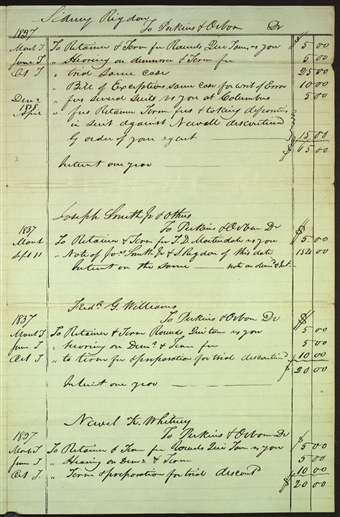 Sidney Rigdon
To Perkins & Osborn Dr
1837
March T To Retainer & Term fee Rounds Qui Tam vs you $ 5 00
June T " Hearing on demurrer & Term fee 5 00
Oct T " trial same case 25 00
" Bill of Exceptions same case for writ of Error 10 00
" fees several suits vs you at Columbus 5 00
1838
April " fees Retainer Term fees & taking depositions
in suit against Newell discontinued
by order of your agent 15 00
$ 65 00
Interest one year
Joseph Smith Jr & others
To Perkins & Osborn Dr
1837 $
March To Retainer & Term fee T. D. Martindale vs you 5 00
Sept 11 " Note of Jos. Smith Jr & S Rigdon of this date
Interest on the same
Fredc. G. Williams
To Perkins & Osborn Dr
1837 $
March T To Retainer & Term Rounds Qui tam vs you 5 00
June T " hearing on Demr. & Term fee 5 00
Oct T " to term fee & preparation for trial discontinued 10 00
$ 20 00
Interest one year
Newel K. Whitney
To Perkins & Osborn Dr
1837 $
March T To Retainer & Term fee Rounds Qui Tam vs you 5 00
June T " Hearing on Demr & Term 5 00
Oct T. " Term & preparation for trial discont 10 00
$ 20 00